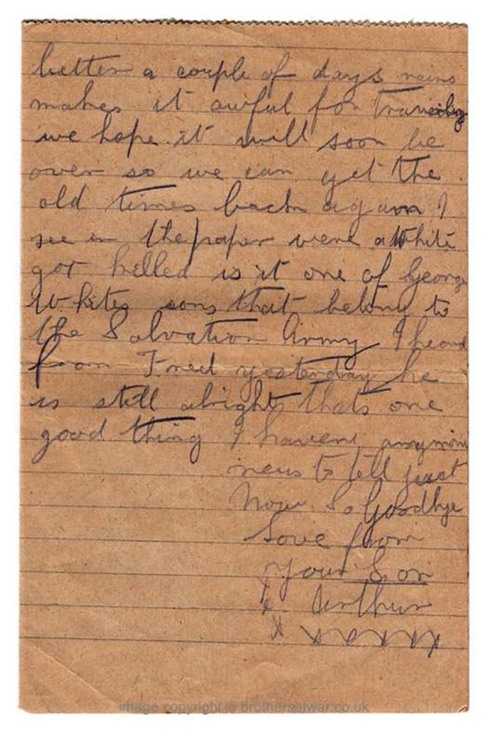 better a couple of days rains
makes it awful for traveling
we hope it will soon be
over so we can get the
old times back again I
see in the paper were a White
got killed is it one of George
Whites sons that belong to
the Salvation Army I heard
from Fred yesterday he
is still alright thats one
good thing I havent anymore
news to tell just
now. So Goodbye
Love from
Your Son
x Arthur
x xxxxx
image copyright © brothersatwar.co.uk